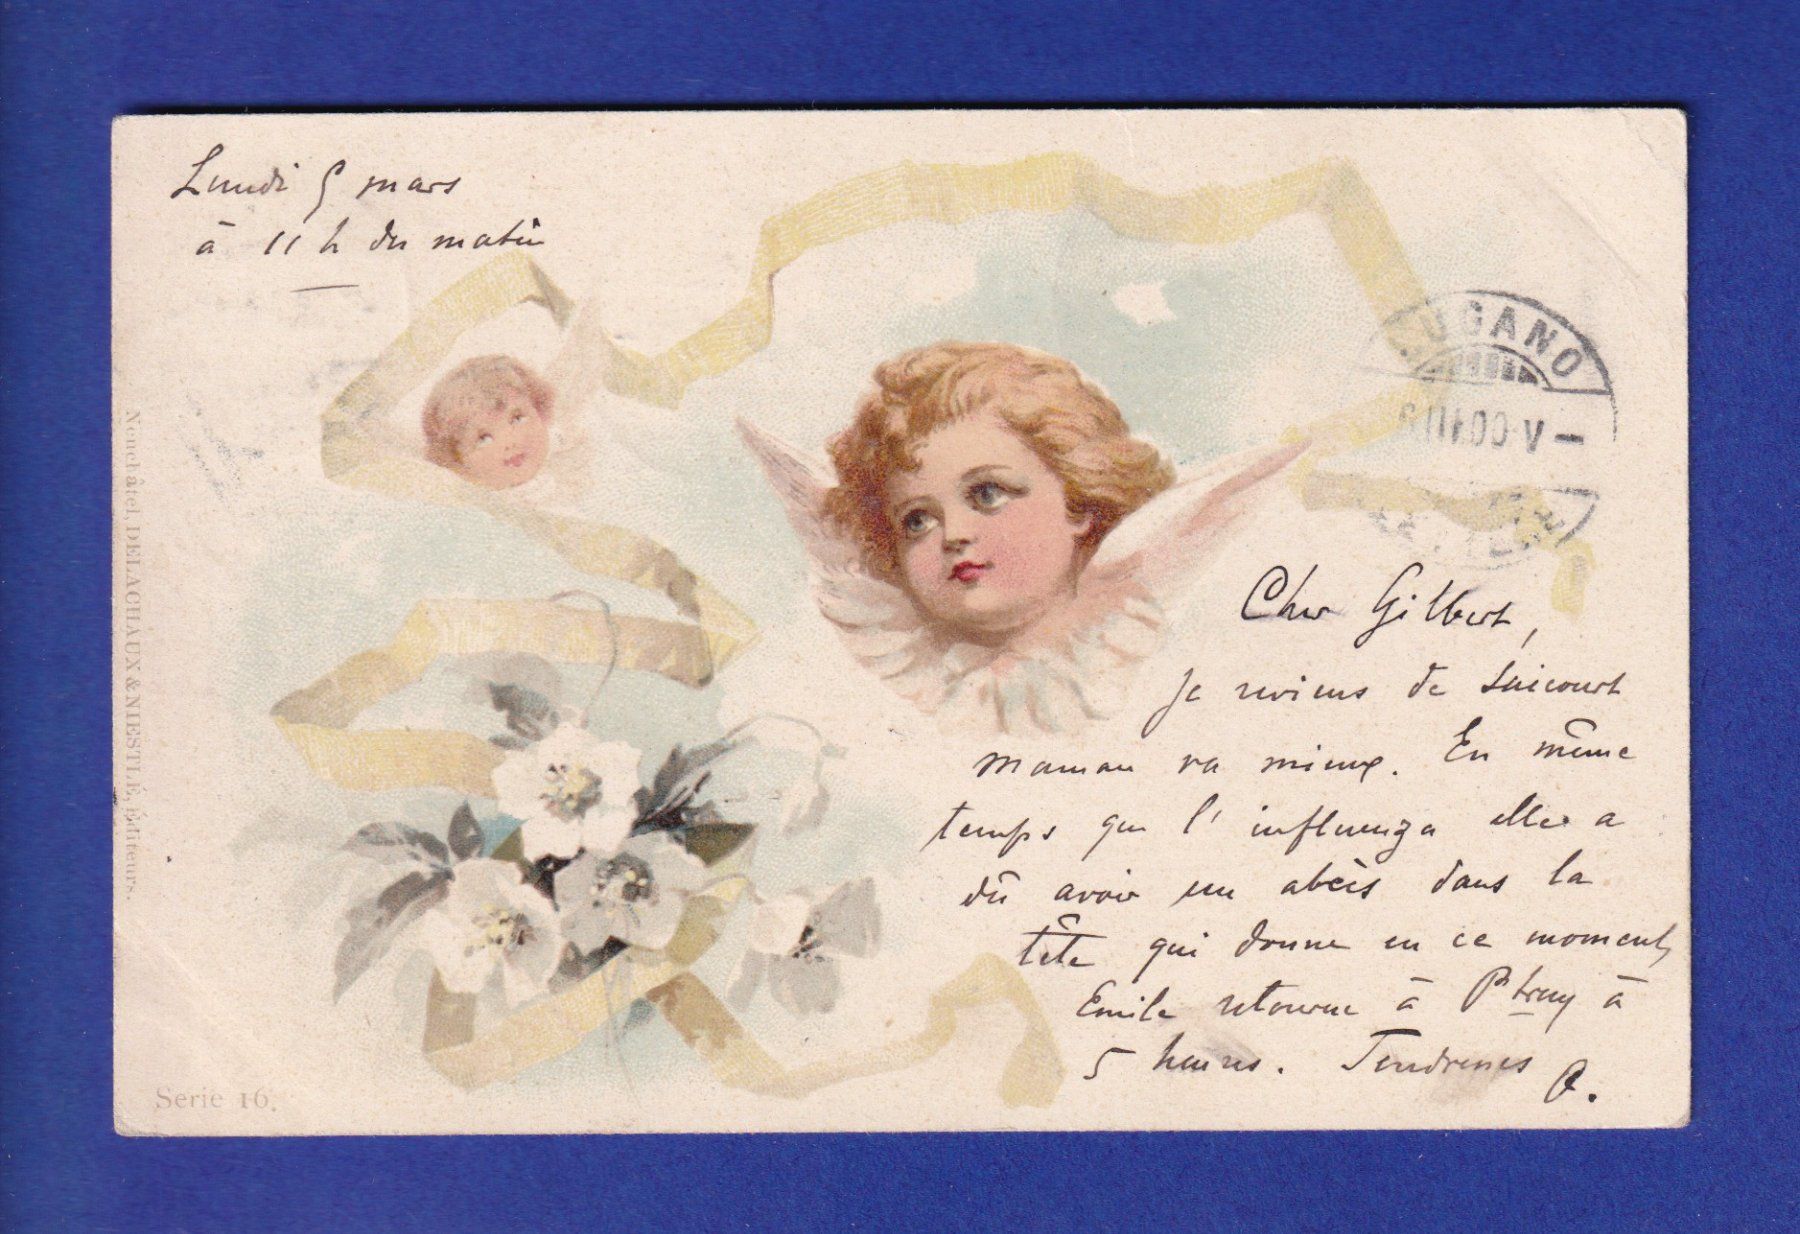 Lundi 5 mars
à 11 h du matin
LUGANO
III.00.V–
Cher Gilbert,
Je reviens de Saicourt
maman va mieux. En même
temps que l'influenza elle a
dû avoir un abcès dans la
tête qui donne en ce moment,
Emile retourne à Ptruy à
5 heures. Tendresses
Neuchâtel, DELACHAUX & NIESTLÉ, éditeurs.
Serie 16.